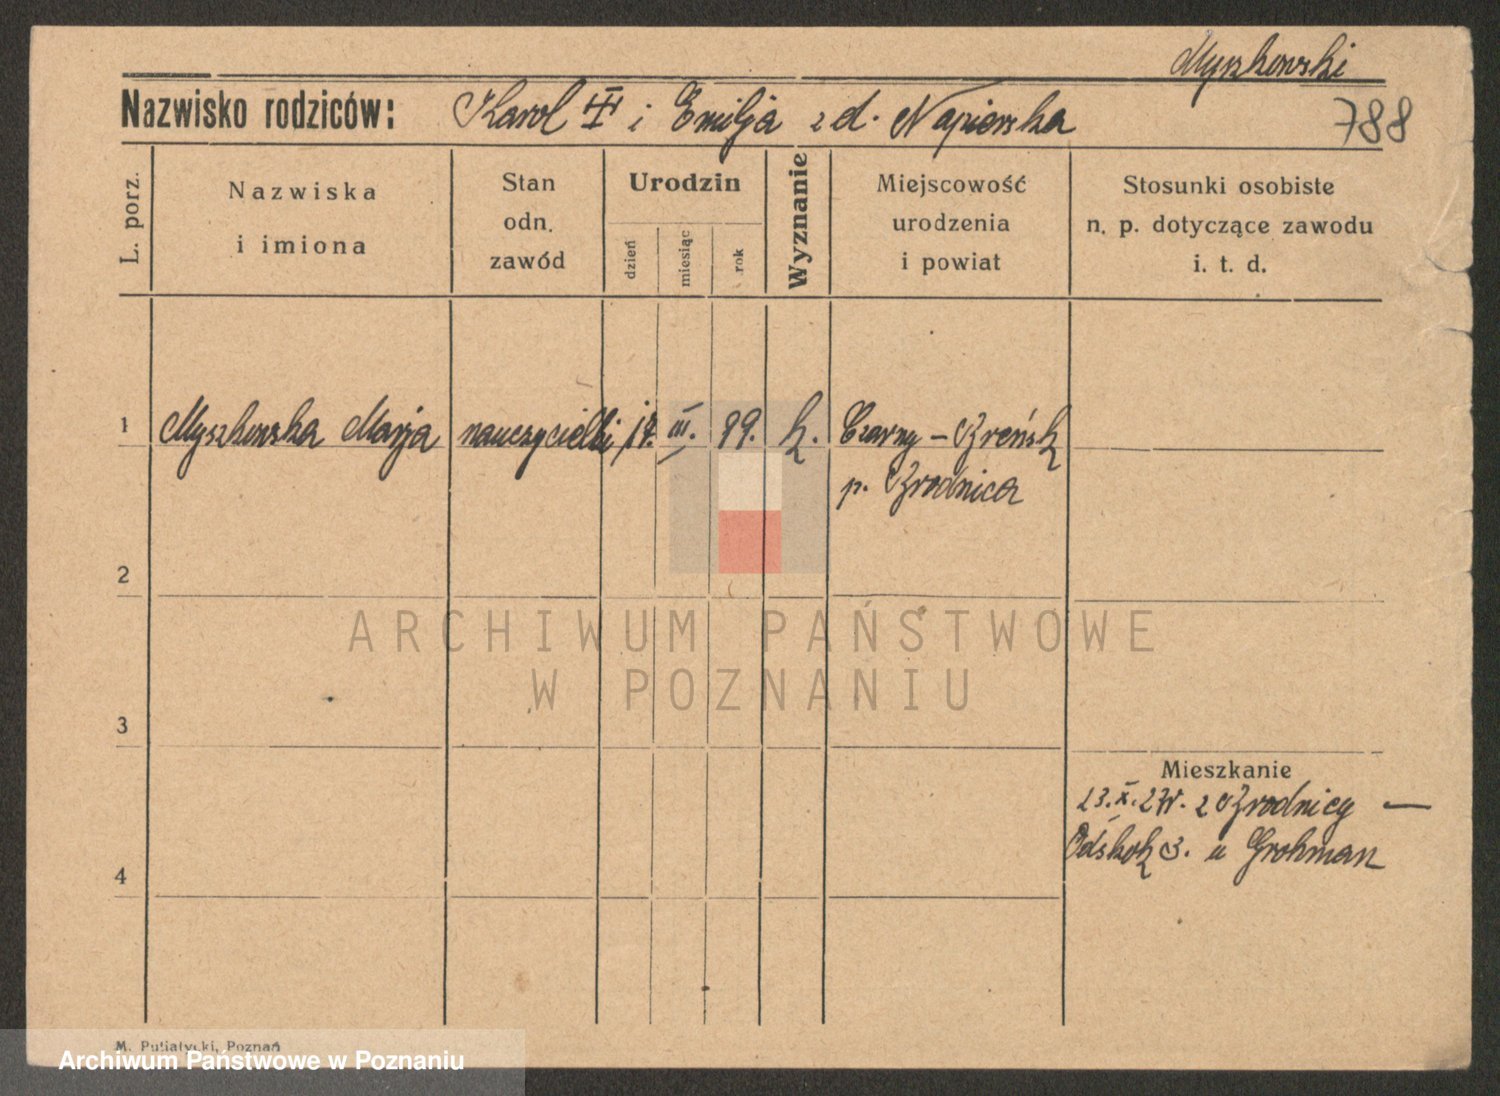 Myszkowski
Nazwisko rodziców: Karol i Emilja z d. Napierska
788
L. porz.
Nazwiska
i imiona
Stan
odn.
zawód
Urodzin
dzień
miesiąc
rok
Wyznanie
Miejscowość
urodzenia
i powiat
Stosunki osobiste
n. p. dotyczące zawodu
i. t. d.
1 Myszkowska Marja III. 99. k. Czarny –
p.
2
3
4
ARCHIWUM PAŃSTWOWE
W POZNANIU
Mieszkanie
23. X. 27r. z —
u Grohman
M. Putiatycki, Poznań
Archiwum Państwowe w Poznaniu